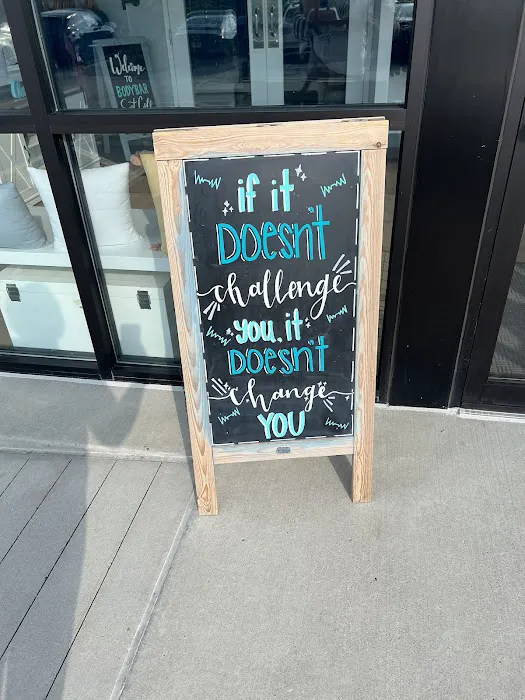 Welcome
TO
BODYBAR
if it
DOESN't
challenge
you, it
DOESN't
change
YOU